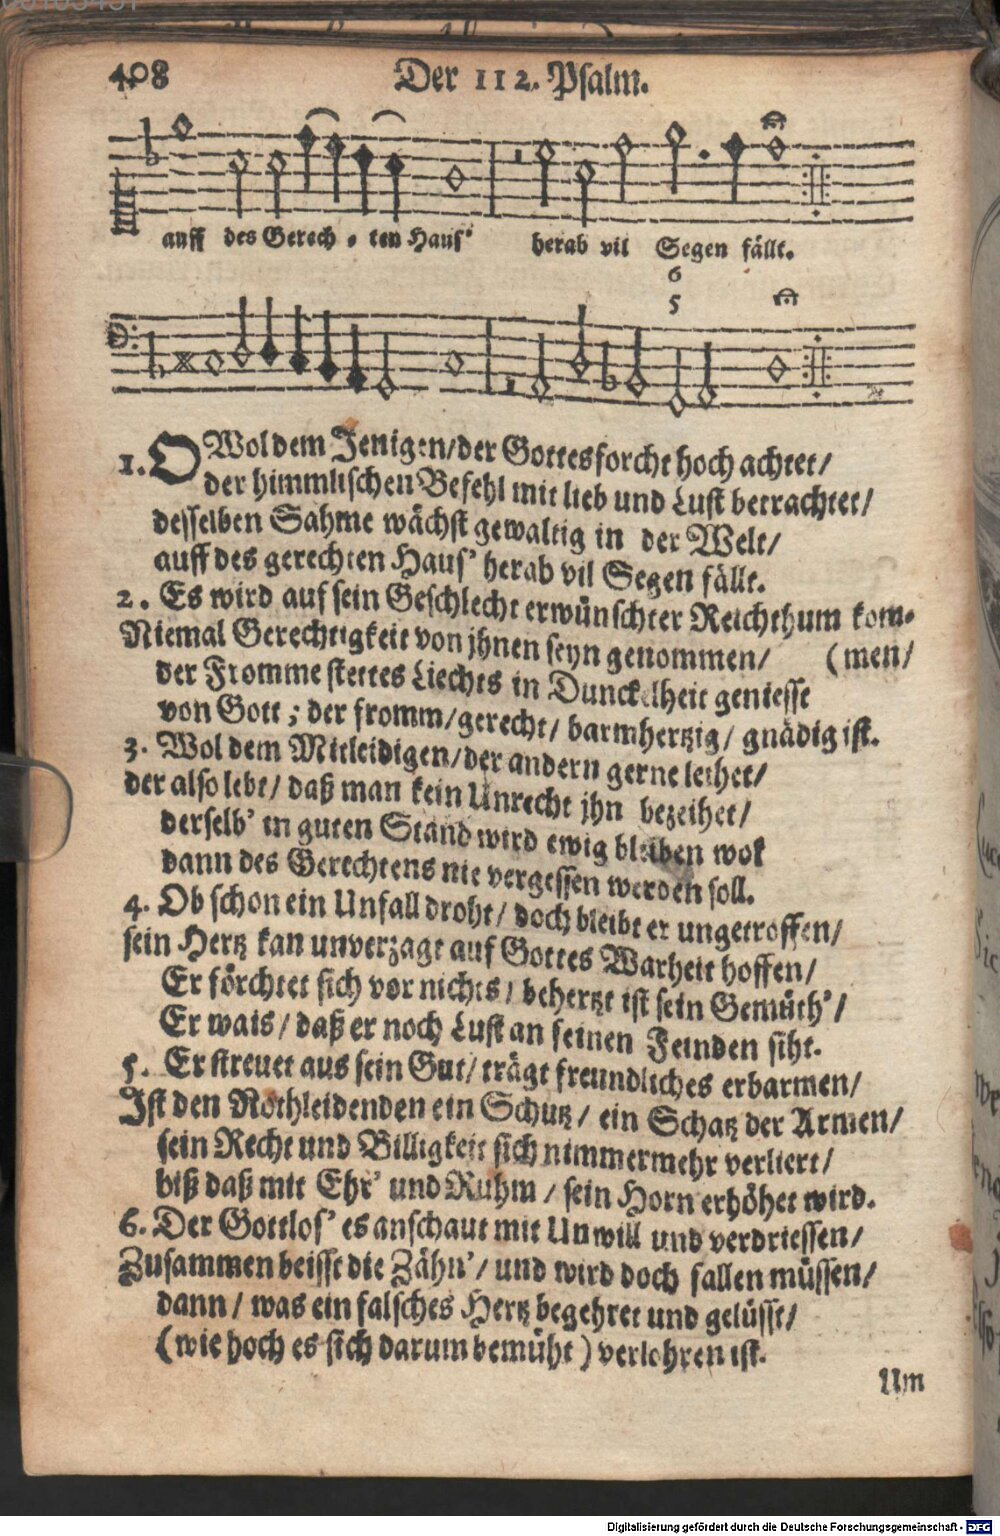 408 Der 112. Psalm.
auff des Gerech - ten Haus' herab vil Segen fällt.
6
5
1. O Wol dem Jenigen/der Gottesforcht hoch achtet/
der himmlischen Befehl mit lieb und Lust betrachtet/
desselben Sahme wächst gewaltig in der Welt/
auff des gerechten Haus' herab vil Segen fällt.
2. Es wird auf sein Geschlecht erwünschter Reichthum kom-
Niemal Gerechtigkeit von jhnen seyn genommen/ (men/
der Fromme stettes Liechts in Dunckelheit geniesst
von Gott; der fromm/gerecht/ barmhertzig/ gnädig ist.
3. Wol dem Mitleidigen/der andern gerne leihet/
der also lebt/ daß man kein Unrecht jhn bezeihet/
derselb' in guten Stand wird ewig bleiben wol
dann des Gerechtens nie vergessen werden soll.
4. Ob schon ein Unfall droht/ doch bleibt er ungetroffen/
sein Hertz kan unverzagt auf Gottes Warheit hoffen/
Er förchtet sich vor nichts/ behertzt ist sein Gemüth'/
Er wais/ daß er noch Lust an seinen Feinden siht.
5. Er streuet aus sein Gut/ trägt freundliches erbarmen/
Ist den Nothleidenden ein Schutz/ ein Schatz der Armen/
sein Recht und Billigkeit sich nimmermehr verliert/
biß daß mit Ehr' und Ruhm/ sein Horn erhöhet wird.
6. Der Gottlos' es anschaut mit Unwill und verdriessen/
Zusammen beisst die Zähn'/ und wird doch fallen müssen/
dann/ was ein falsches Hertz begehret und gelüsst/
(wie hoch es sich darum bemüht) verlohren ist.
Um
Digitalisierung gefördert durch die Deutsche Forschungsgemeinschaft - DFG